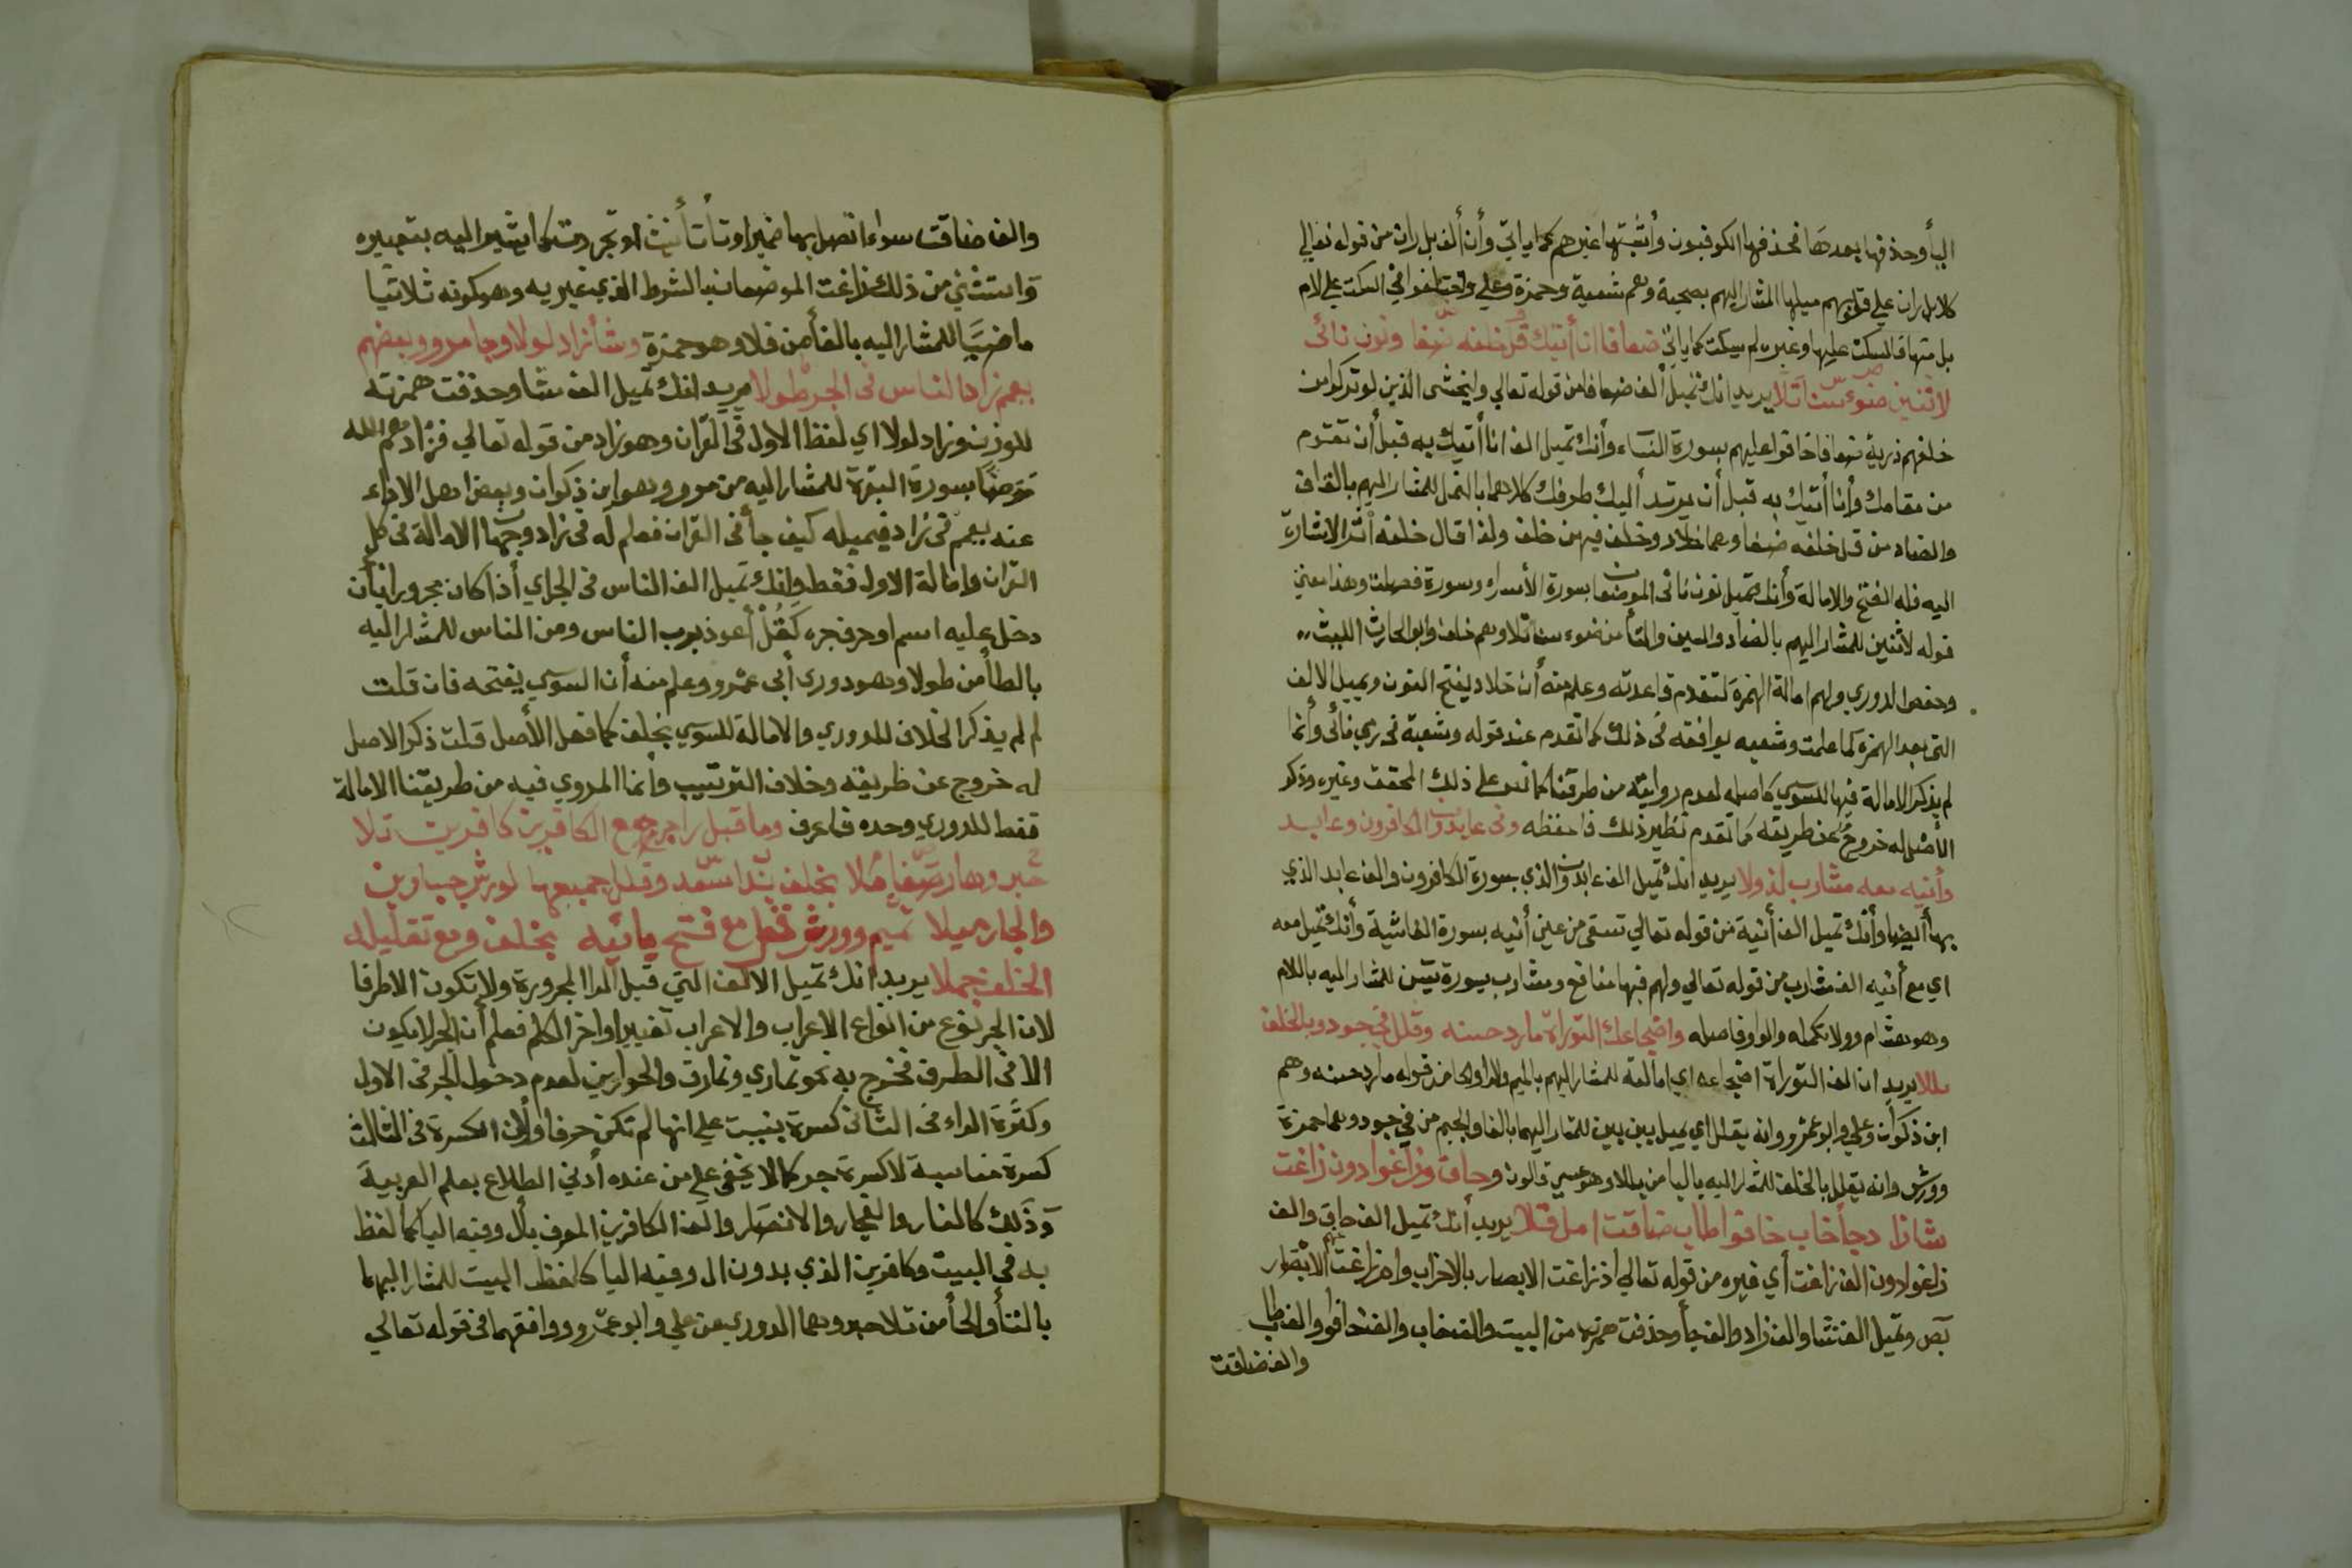 اليأ وحذفها بعدها فحذفها الكوفيون وأثبتها غيرهم كما يأتي وأن ألف بل ران من قوله تعالي
كلا بل ران علي قلوبهم ميلها المشار اليهم بصحبة وهم شعبة وحمزة وعلي واختلفوا في السكت علي لام
بل منها فالسكت عليها وغيره لم يسكت كما يأتي ضعافا انا أتيك خلفه ضفا ونون نائى
لاثنين ضوء سنا تلا يريد انك تميل ألف ضعافا من قوله تعالي وليخشى الذين لو تركوا من
خلفهم ذرية ضعافا خافوا عليهم بسورة النساء وأنك تميل الف انا أتيك به قبل أن تقوم
من مقامك وأنا أتيك به قبل أن يرتد أليك طرفك كلاهما بالنمل للمشار اليهم بالقاف
والضاد من قل خلفه ضفا وهما خلاد وخلف فيهن خلف ولذا قال خلفه أثر الاشارة
اليه فله الفتح والامالة وأنك تميل نون نائى الموضعان بسورة الأسراء وسورة فصلت وهذا معني
قوله لاثنين للمشار اليهم بالضاد والسين والتأ من ضوء سنا تلا وهم خلف وابو الحارث الليث
وحفص الدوري ولهم امالة الهمزة لتقدم قاعدته وعلم منه أن خلاد يفتح النون ويميل الالف
التي بعد الهمزة كما علمت وشعبه يوافقه في ذلك كما تقدم عند قوله وشعبة في رمي نائى وأنما
لم يذكر الامالة فيها للسوسي كاصله لعدم روايته من طرقنا كما نص علي ذلك المحقق وغيره وذكر
الأصل له خروج عن طريقه كما تقدم نظير ذلك فاحفظه وفي عابدون الكافرون وعابد
وأنيه معه مشارب لذ ولا يريد انك تميل الف عابدون الذي بسورة الكافرون والف عابد الذي
بها أيضا وأنك تميل الف أنية من قوله تعالي تسقى من عين أنيه بسورة الغاشية وأنك تميل معه
اي مع أنيه الف مشارب من قوله تعالي ولهم فيها منافع ومشارب بسورة يس للمشار اليه باللام
وهو هشام وولا تكمله والواو فاصله واضجاعك التوراة ما رد حسنه وقلل في جود وبالخلف
بللا يريد ان الف التوراة اضجاعه اي امالته للمشار اليهم بالميم والراء والحا من قوله ما رد حسنه وهم
ابن ذكوان وعلي وابو عمرو وانه يقلل اي يميل بين بين للمشار اليهما بالفا والجيم من في جود وهما حمزة
وورش وانه يقلل بالخلف للمشار اليه باليا من بللا وهو عيسي قالون وحاق وزاغوا دون زاغت
شا زاد جأ خاب خافوا طاب ضاقت امل فتلا يريد أنك تميل الف حاق والف
زاغوا دون الف زاغت أي غيره من قوله تعالي اذ زاغت الابصار بالاحزاب وام زاغت عنهم الابصار
بص وتميل الف شا والف زاد والف جأ وحذفت همزتها من البيت والف خاب والف خافوا والف طاب
والف ضاقت
والف ضاقت سواء اتصل بها ضمير او تا تأنيث او تجردت كما يشير اليه بتعبيره
واستثني من ذلك زاغت الموضعان بالشرط الذي غير به وهو كونه ثلاثيا
ماضيا للمشار اليه بالفأ من فلا وهو حمزة وشأ زاد لولا وجا مور وبعضهم
يعم زاد الناس في الجر طولا يريد انك تميل الف شا وحذفت همزته
للوزن وزاد لولا اي لفظ الاول في القران وهو زاد من قوله تعالي فزادهم الله
مرضا بسورة البقرة للمشار اليه من مور وهو ابن ذكوان وبعض اهل الاداء
عنه يعم في زاد فيميله كيف جأ في القران فعلم له في زاد وجهان الامالة في كل
القران وامالة الاول فقط وانك تميل الف الناس في الجر اي أذا كان مجرورا بأن
دخل عليه اسم او حرف جره كقل أعوذ برب الناس ومن الناس للمشار اليه
بالطأ من طولا وهو دوري أبي عمرو وعلم منه أن السوسي يفتحه فان قلت
لم لم يذكر الخلاف للدوري والامالة للسوسي بخلف كما فعل الأصل قلت ذكر الاصل
له خروج عن طريقه وخلاف الترتيب وأنما المروي فيه من طريقنا الامالة
فقط للدوري وحده فاعرف وما قبل را جر مع الكافرين كافرين تلا
حبر وهار صفا خلا بخلف بدا سعد وقلل جميعها لورش جبارين
والجار ميلا تميم وورش قل مع فتح يائيه بخلف ومع تقليله
الخلف جملا يريد انك تميل الالف التي قبل الرا المجرورة ولا تكون الا طرفا
لان الجر نوع من انواع الاعراب والاعراب تغيير اواخر الكلم فعلم أن الجر لا يكون
الا في الطرف فخرج به نحو تماري ونمارق والحواريين لعدم دخول الجر في الاول
وكثرة الراء في الثاني كسرة بنيت علي انها لم تكن حرفا ولأن الكسرة في الثالث
كسرة مناسبة لا كسرة جر كما لا يخفى علي من عنده أدني اطلاع بعلم العربية
وذلك كالنار والفجار والانصار والف الكافرين المعرف بأل وفيه اليا كما لفظ
به في البيت وكافرين الذي بدون ال وفيه اليا كلفظ البيت للمشار اليهما
بالتأ والحأ من تلا حبر وهما الدوري عن علي وابو عمرو ووافقهما في قوله تعالي